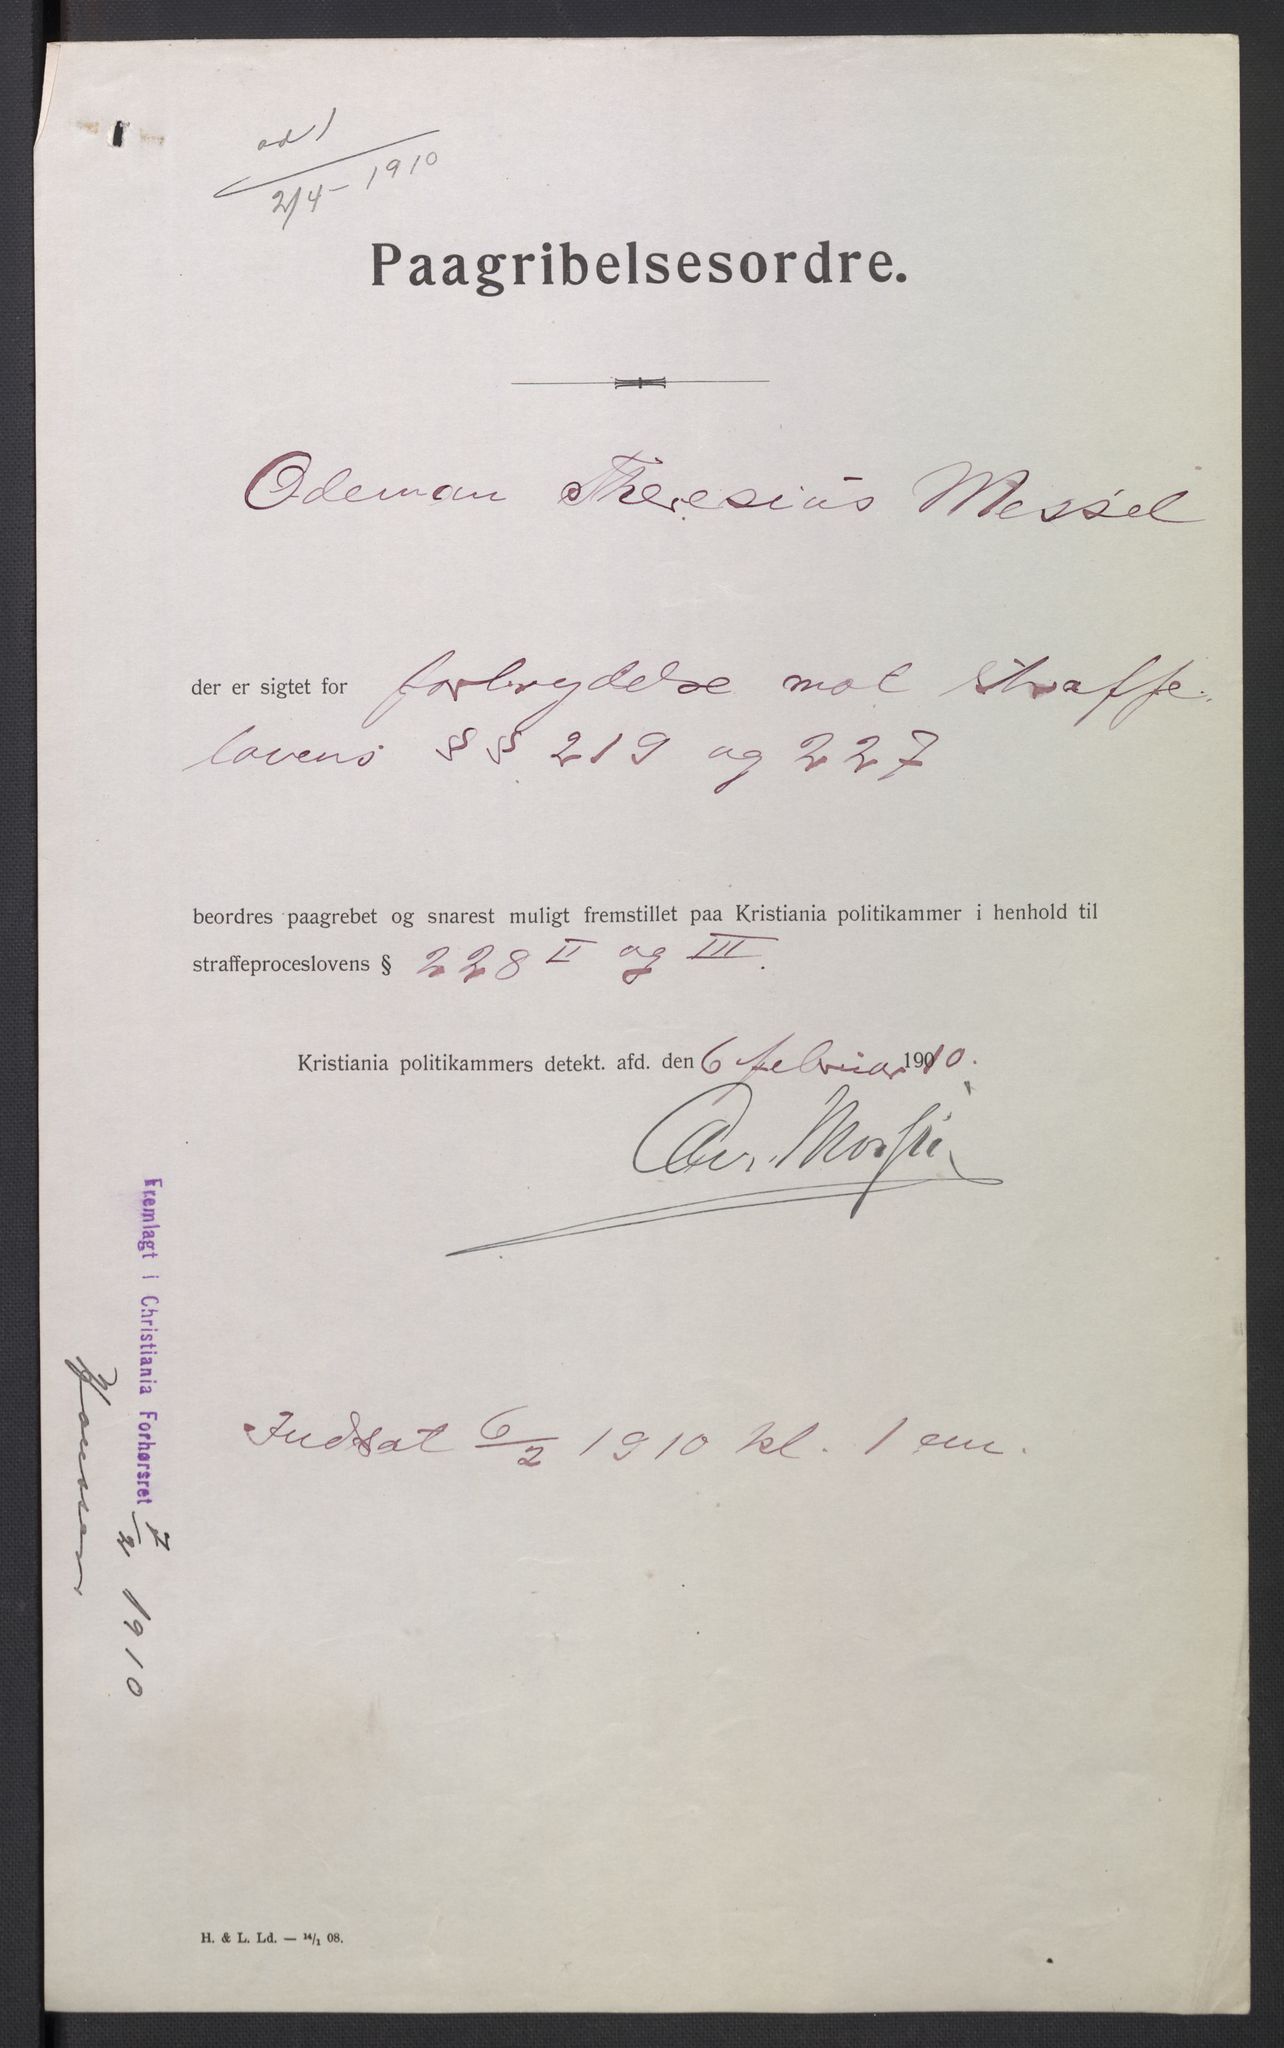 ad 1
2/4 - 1910
Paagribelsesordre.
Odeman Theresius Messel
der er sigtet for forbrydelse mot straffe-
lovens §§ 219 og 227
beordres paagrebet og snarest muligt fremstillet paa Kristiania politikammer i henhold til
straffeproceslovens § 228 II og III.
Kristiania politikammers detekt. afd. den 6 februar 1910.
Fremlagt i Christiania Forhørsret 7/2 1910
Indsat 6/2 1910 kl. 1 em.
H. & L. Ld. — 14/1 08.